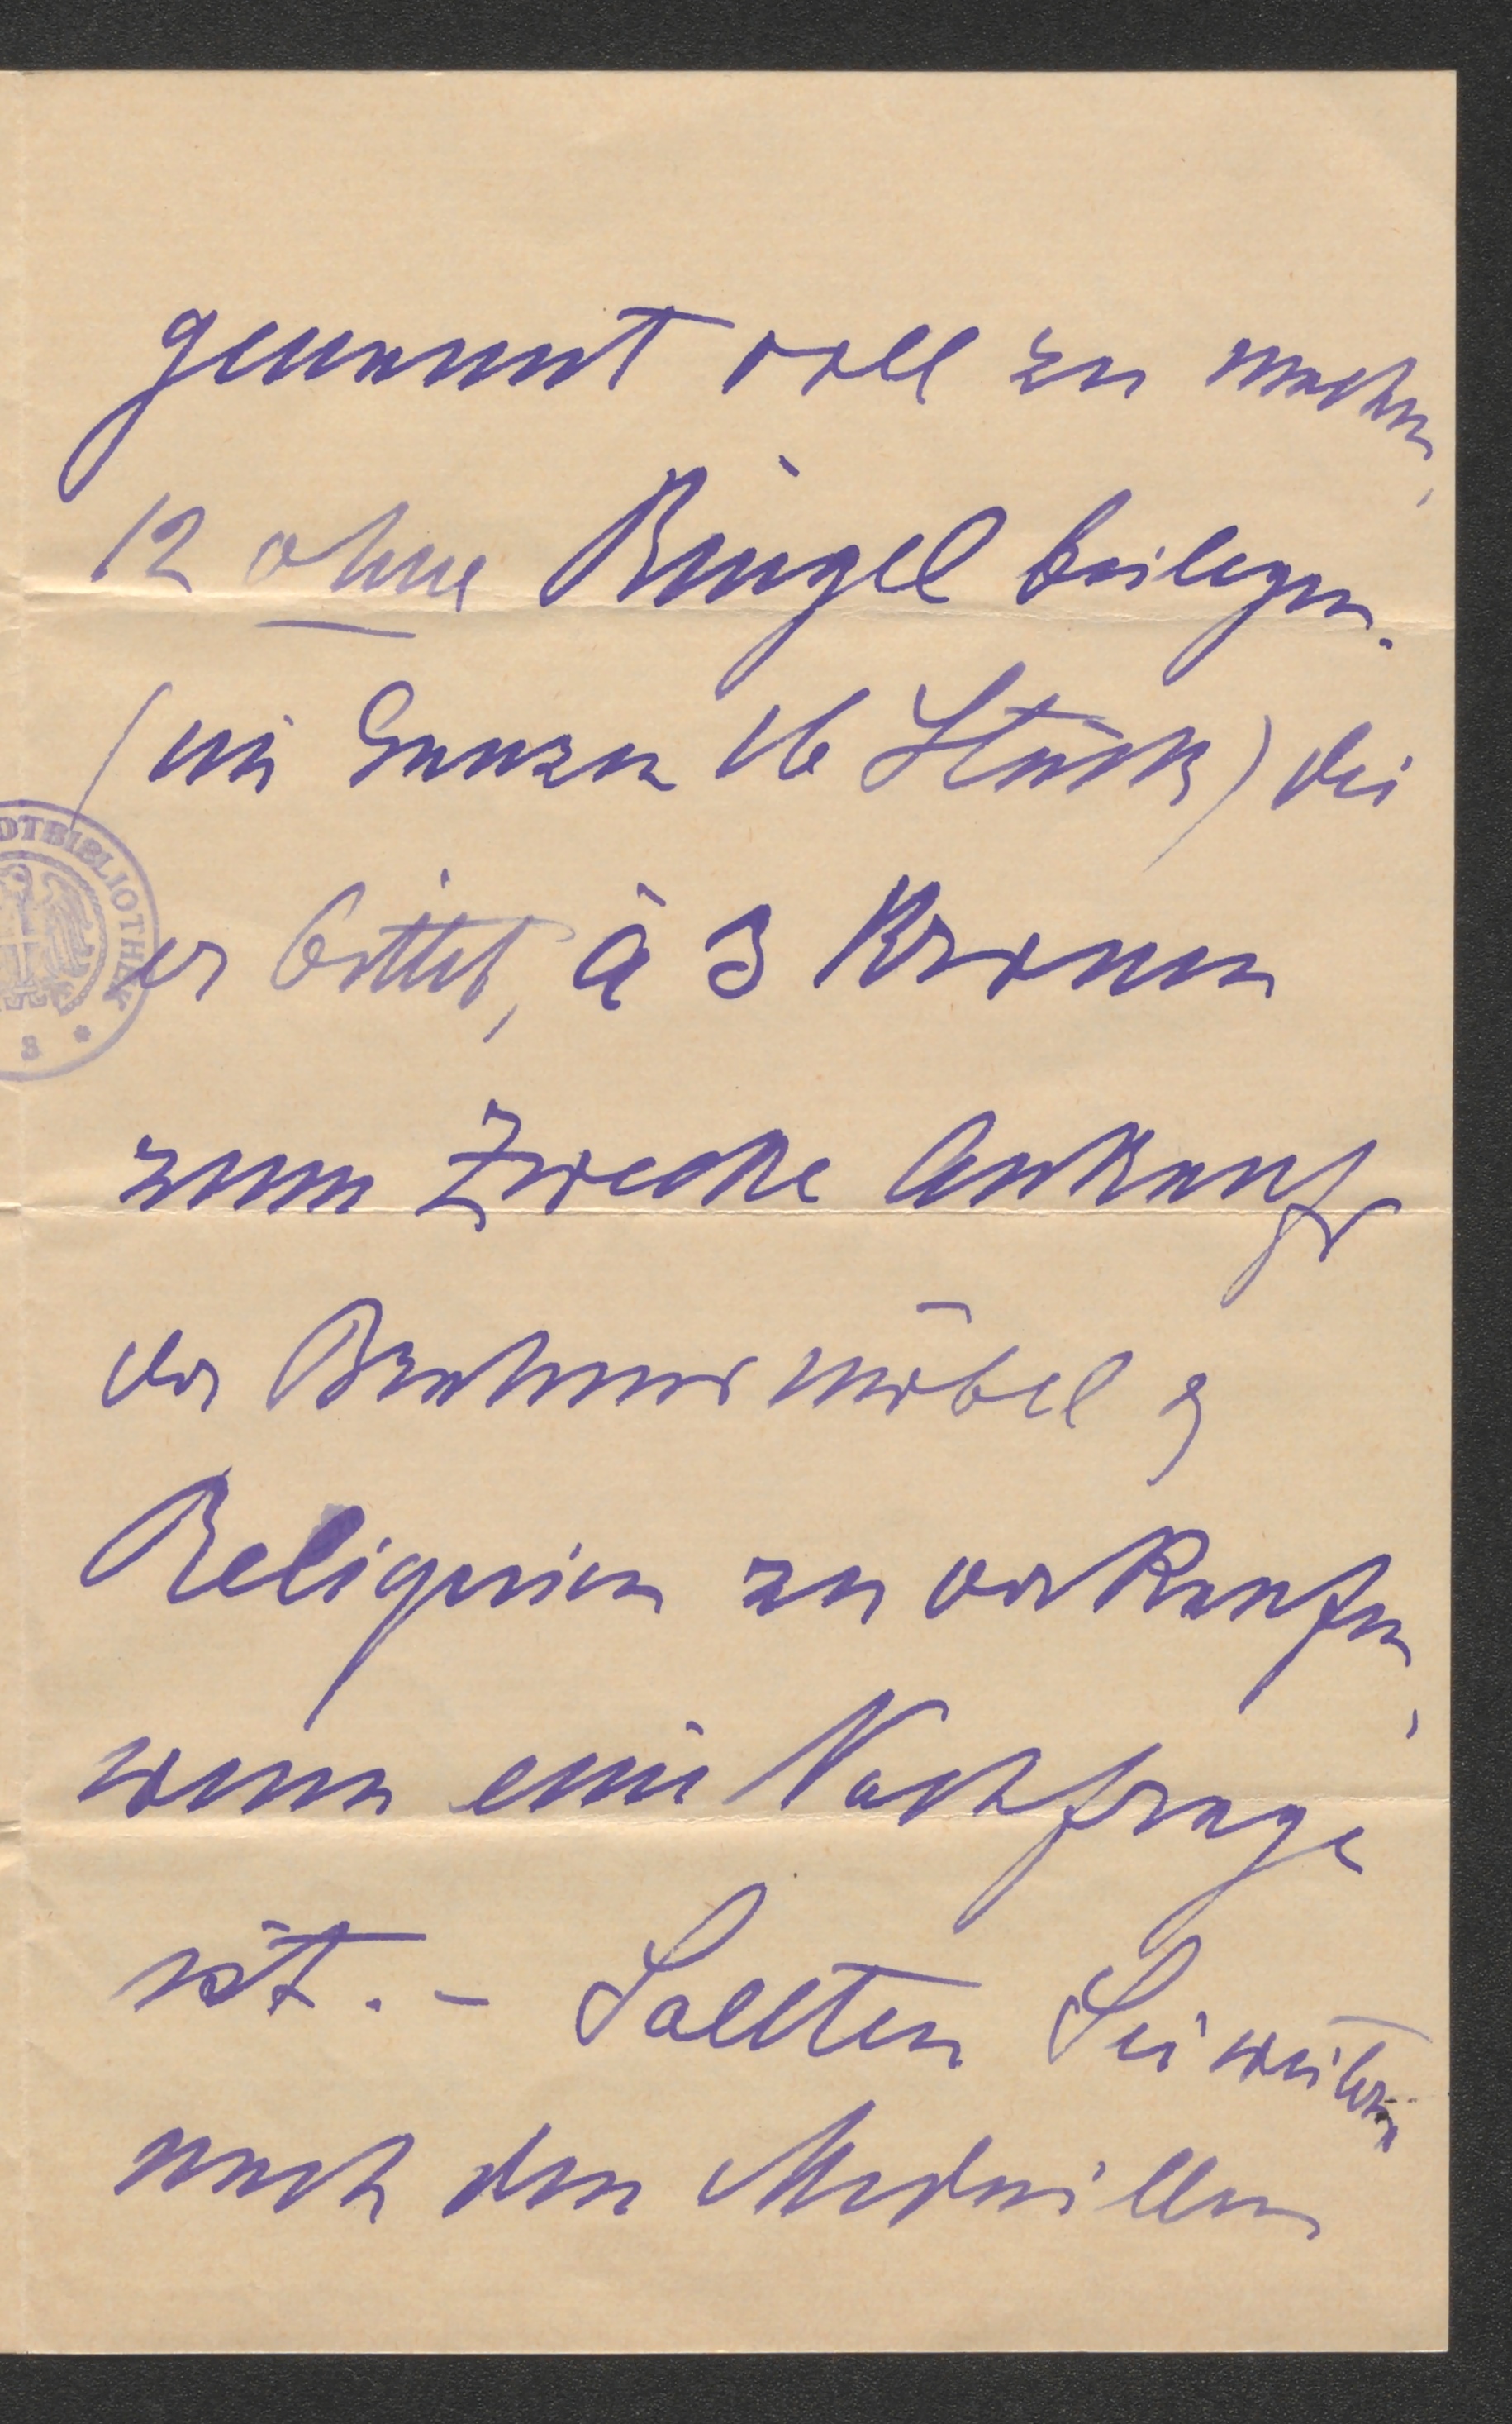 genannt voll zu machen,
12 ohne Bügel beilegen.
(im Ganzen 16 Stück) die
er bittet, à 3 Kronen
zum Zwecke Ankauf
der Brahmsmöbel &
Reliquien zu verkaufen,
wenn eine Nachfrage
ist. – Sollten Sie weiters
nach den Medaillen
DTBIBLIOTHEK